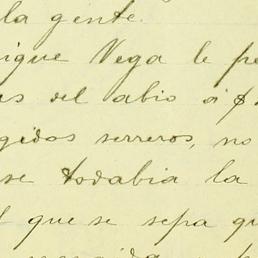 la gente.
ique Vega le pe
as del abio á
gidos serreros, no
se todabia la
l que se sepa qu